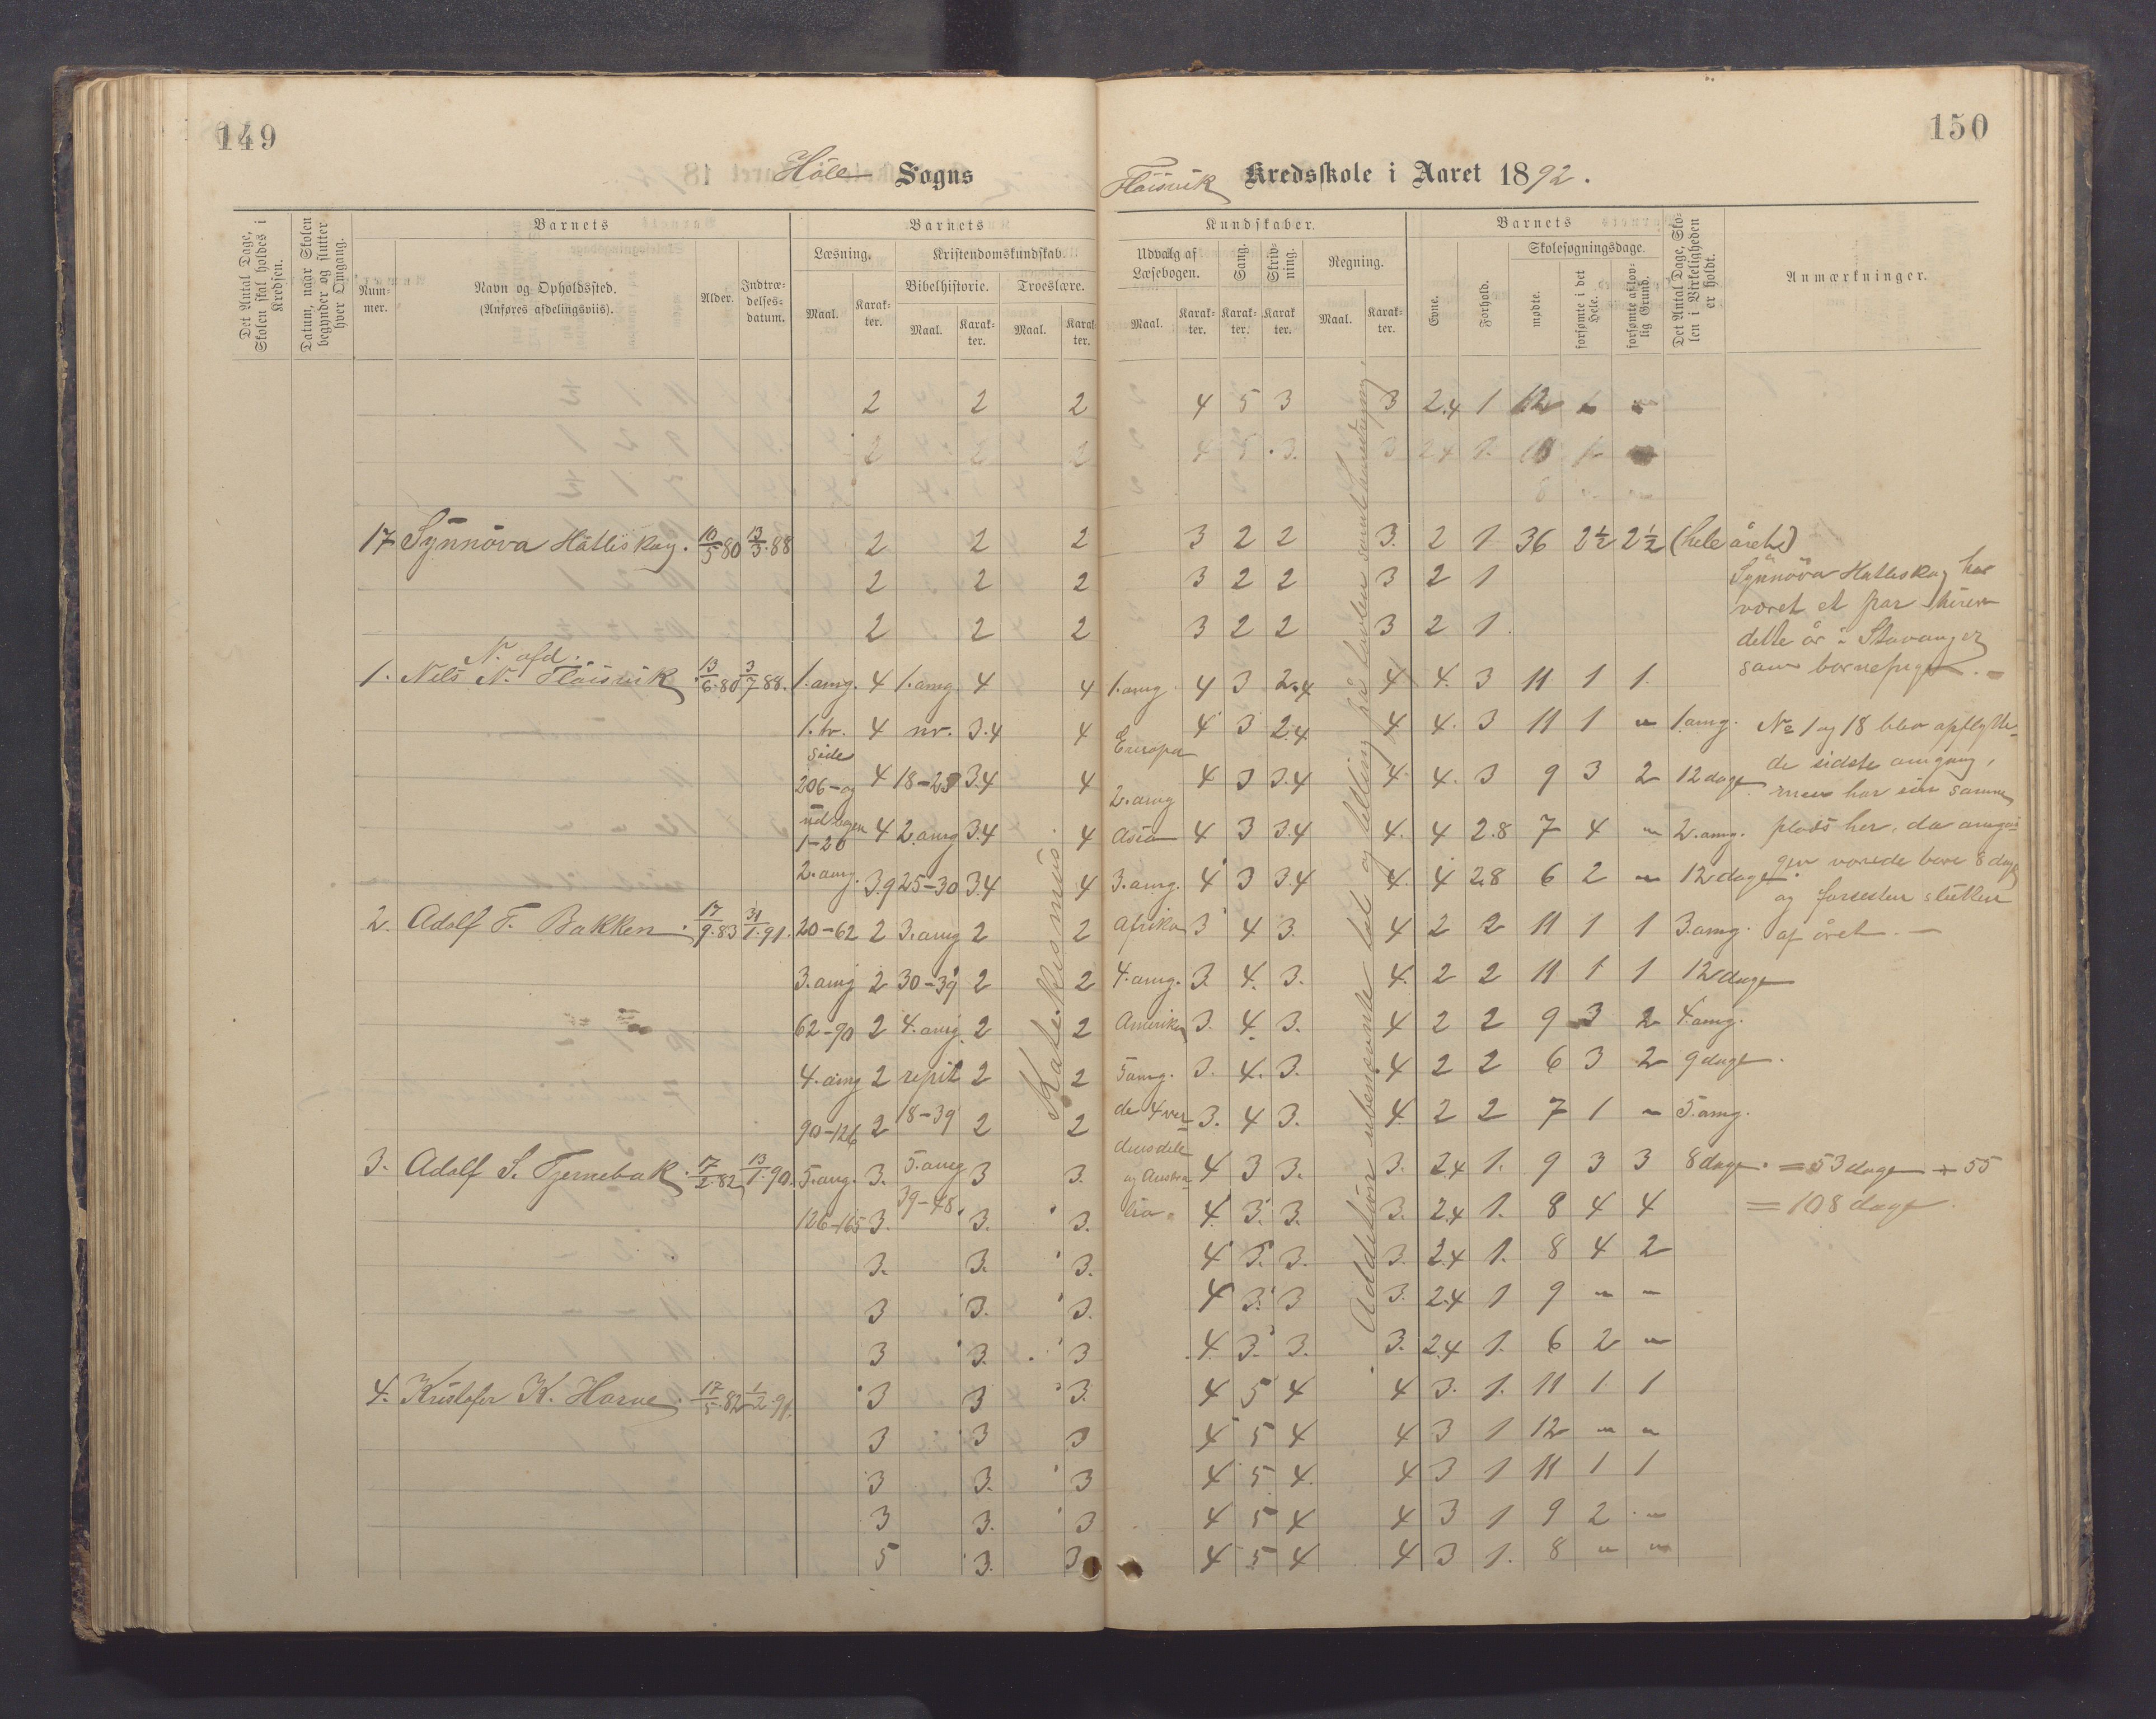 149
150
Höle Sogns
Fløisvik Kredsskole i Aaret 1892.
Det Antal Dage, Skolen skal holdes i Kredsen.
Datum, naar Skolen begynder og slutter hver Omgang.
Barnets
Num-
mer.
Navn og Opholdssted.
(Anføres afdelingsviis).
Alder.
Indtræ-
delses-
datum.
Barnets
Læsning.
Maal.
Karak-
ter.
Kristendomskundskab.
Bibelhistorie.
Maal.
Karak-
ter.
Troeslære.
Maal.
Karak-
ter.
Kundskaber.
Udvalg af
Læsebogen.
Maal.
Karak-
ter.
Sang.
Karak-
ter.
Skriv-
ning.
Karak
ter.
Regning.
Maal.
Karak-
ter.
Barnets
Evne.
Forhold.
Skolesøgningsdage.
mødte.
forsømte i det Hele.
forsømte af lov-
lig Grund.
Det Antal Dage, Sko-
len i Virkeligheden
er holdt.
Anmærkninger.
2 2 2 4 5 3 3 2.4 1 12
2 2 2 4 5 3. 3 2.4 1. 10
17 Synnöva Hatleskog. 10/5 80 13/3.88 2 2 2 3 2 2 3. 2 1 36 2½ 2½ (hele året)
2 2 2 3 2 2 3 2 1
2 2 2 3 2 2 3 2 1
Synnöva Hatleskog har
været et par turer
dette år i Stavanger
som barnepige. -
N. afd.
1. Nils N. Flöisvik 13/6.80 3/7 88. 1. omg. 4 1. omg. 4 4 1. omg. 4 3 2.4 4 4. 3 11 1 1.
1. tr. 4 nr. 3.4 4 Europa 4 3 2.4 4 4. 3 11 1 " 1 omg.
side
206 - og 4 18-25 3.4 4 2. omg 4 3 3.4 4 4. 3 9 3 2 12 dage
1-20 4 2. omg 3.4 4 Asia 4 3 3.4 4. 4 2.8 7 4 " 2. omg.
2. omg. 3.9 25-30 3.4 4 3. omg. 4 3 3.4 4. 4 2.8 6 2 " 12 dage
No 1 og 18 blev opflytte-
de sidste omgang,
men har sin samme
plads her, da omgan-
gen varede bare 8 dage
og forresten slutten
af året. -
2. Adolf T. Bakken. 17/9.83 31/1.91. 20-62 2 3. omg 2 2 Afrika 3 4 3. 4 2 2 11 1 1 3. omg.
3. omg 2 30-39 2 2 4. omg. 3. 4. 3. 4. 2 2 11 1 1 12 dage
62-90 2 4. omg. 2 2 Amerika 3. 4. 3. 4 2 2 9 3 2 4. omg.
4. omg 2 repit 2 2 5 omg. 3. 4. 3. 4 2 2 6 3 2 9 dage.
90-126 2 18-39 2 2 de 4 ver- 3. 4 3. 4. 2 2 7 1 " 5. omg.
3. Adolf S. Tjernebak. 17/2.82 13/1.90. 5. omg. 3. 5. omg 3 3. densdele 4 3 3. 3. 2.4 1. 9 3 3 8 dage. = 53 dage + 55
126-165 3. 39-48. 3. 3. og Austra- 4. 3. 3. 3. 2.4 1. 8 4 4 = 108 dage
3. 3. 3. lia. 4 3. 3. 3. 2.4 1. 8 4 2
3 3. 3. 4 3. 3 3. 2.4 1 9 " "
3 3. 3 4. 3. 3. 3. 2.4 1. 6 2 "
4. Kristofer K. Horve. 17/5.82 1/2.91. 3 3 3. 4 5 4 4 3. 1. 11 1 1
3 3 3 4 5 4 4 3 1 12 " "
3 3. 3 4 5 4. 4 3 1 11 1 1
3 3. 3 4 5 4 4 3 1 9 2 "
5 3. 3 4 5 4 4 3 1. 8 " "
Katekismus.
Addition ubenævnte